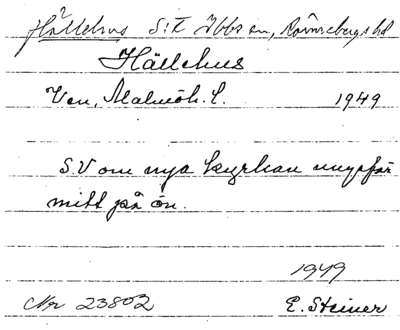 Hällehus S:t Ibbs sn, Rönnebergs hd
Hällehus
Ven, Malmöh. L. 1949
S.V om nya kyrkan ungefär
mitt på ön.
1949
Nr 23802 E. Steiner